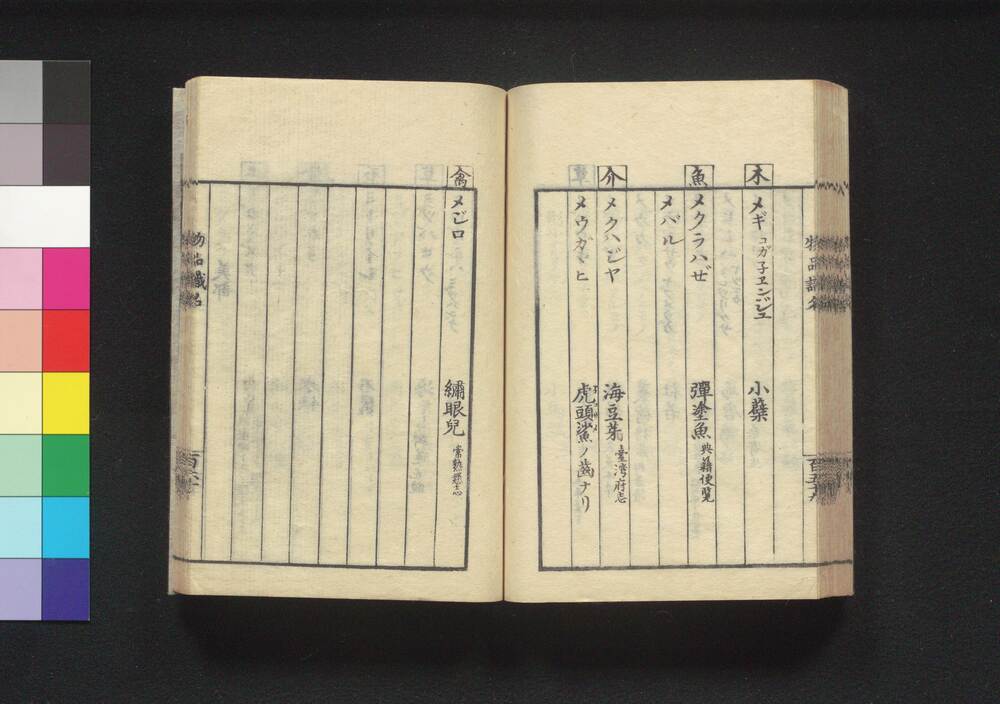 木
メギ コガ子ヱンジュ 小蘗
魚
メクラハゼ 彈塗魚 典籍便覧
メバル
介
メクハジヤ 海豆芽 臺湾府志
メウガヾヒ 虎頭鯊ノ歯ナリ
禽
メジロ 繡眼兒 常熟縣志
物品識名